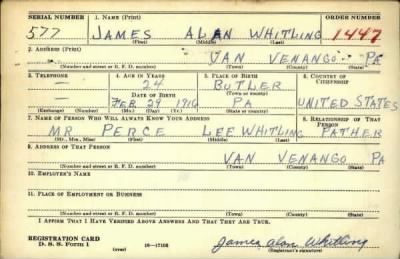 SERIAL NUMBER 1. NAME (Print) ORDER NUMBER
577 JAMES ALAN WHITLING 1447
(First) (Middle) (Last)
2. ADDRESS (Print)
VAN VENANGO PA
(Number and street or R. F. D. number) (Town) (County) (State)
3. TELEPHONE 4. AGE IN YEARS 5. PLACE OF BIRTH 6. COUNTRY OF CITIZENSHIP
24 BUTLER
DATE OF BIRTH (Town or county)
FEB 29 1916 PA UNITED STATES
(Exchange) (Number) (Mo.) (Day) (Yr.) (State or country)
7. NAME OF PERSON WHO WILL ALWAYS KNOW YOUR ADDRESS 8. RELATIONSHIP OF THAT PERSON
MR PERCE LEE WHITLING FATHER
(Mr., Mrs., Miss) (First) (Middle) (Last)
9. ADDRESS OF THAT PERSON
VAN VENANGO PA
(Number and street or R. F. D. number) (Town) (County) (State)
10. EMPLOYER'S NAME
11. PLACE OF EMPLOYMENT OR BUSINESS
(Number and street or R. F. D. number) (Town) (County) (State)
I AFFIRM THAT I HAVE VERIFIED ABOVE ANSWERS AND THAT THEY ARE TRUE.
REGISTRATION CARD
D. S. S. Form 1 (over) 16—17105 James Alan Whitling
(Registrant's signature)